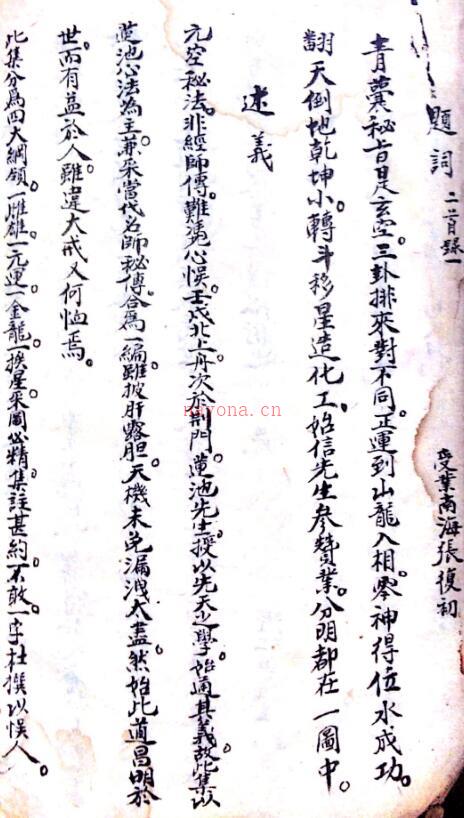 題詞 二首錄一
受業南海張復初
青囊秘旨是玄空。三卦排來對不同。正運到山龍入相。零神得位水成功。
翻天倒地乾坤小。轉斗移星造化工。始信先生參贊業。分明都在一圖中。
述義
元空秘法。非經師傳。難憑心悞。壬戌北上。舟次於荆門。蓮池先生。授以先天之學。始通其義。故此集以
蓮池心法為主。兼采當代名師秘傳。合為一編。雖披肝露胆。天機未免漏洩太盡。然始此道昌明於
世。而有益於人。雖違大戒。又何恤焉。
此集分為四大綱領。一雌雄。一元運。一金龍。一挨星。采圖必精。集註甚約。不敢一字杜撰以悞人。
nayona.cn